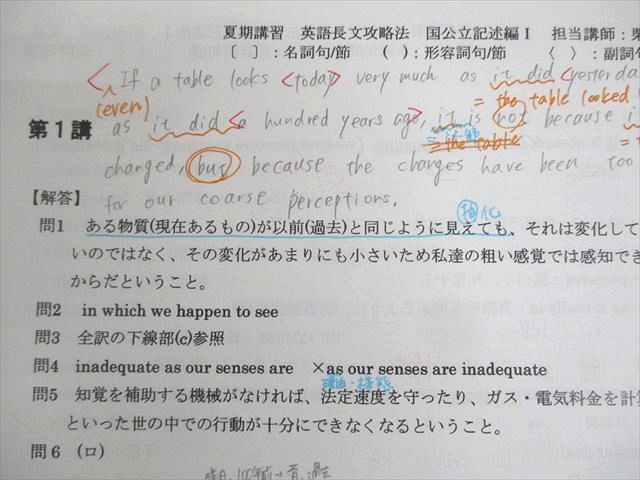 夏期講習 英語長文攻略法 国公立記述編Ⅰ 担当講師：栗
〔 〕：名詞句/節 （ ）：形容詞句/節 〈 〉：副詞
< If a table looks <today> very much as it did <yesterda
(even) = the table looked
第1講 as it did <a hundred years ago>, it is not because i
= the table
changed, but because the changes have been too
for our coarse perceptions.
【解答】
抽 化
問1 ある物質(現在あるもの)が以前(過去)と同じように見えても、それは変化して
いのではなく、その変化があまりにも小さいため私達の粗い感覚では感知でき
からだということ。
問2 in which we happen to see
問3 全訳の下線部(c)参照
問4 inadequate as our senses are ×as our senses are inadequate
問5 知覚を補助する機械がなければ、法定速度を守ったり、ガス・電気料金を計算
といった世の中での行動が十分にできなくなるということ。
問6 (ロ)
昨日、100年前→昔、過去